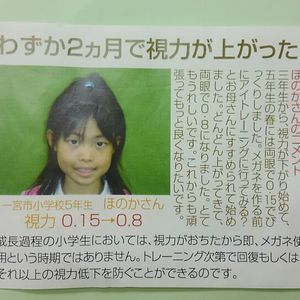 わずか2ヵ月で視力が上がった
ほのかさんコメント
三年生から、視力が下がり始めて、
五年生の春には両眼で0.15でび
っくりしました。メガネを作る前
にアイトレーニングに行ってみる?
とお母さんにすすめられて始め
ました。どんどん上がってきて、
両眼で0.8になりました。とて
もうれしいです。これからも頑
張ってもっと良くなりたいです。
一宮市小学校5年生 ほのかさん
視力 0.15→0.8
成長過程の小学生においては、視力がおちたから即、メガネ使
用という時期ではありません。トレーニング次第で回復もしくは
それ以上の視力低下を防ぐことができるのです。